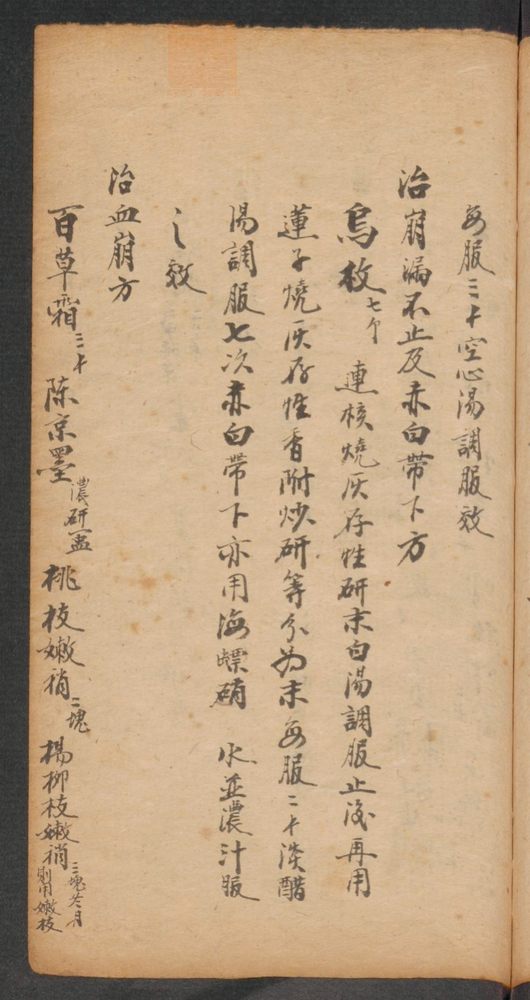 每服二卜空心湯調服效
治崩漏不止及赤白帶下方
烏枚七个 連核燒灰存性研末白湯調服止後再用
蓮子燒灰存性香附炒研等分為末每服二卜淡醋
湯調服七次赤白帶下亦用海螵硝 水並濃汁服
之效
治血崩方
百草霜三卜 陈京墨濃研一盞 桃枝嫩稍二塊 楊柳枝嫩稍三塊冬月則用嫩枝